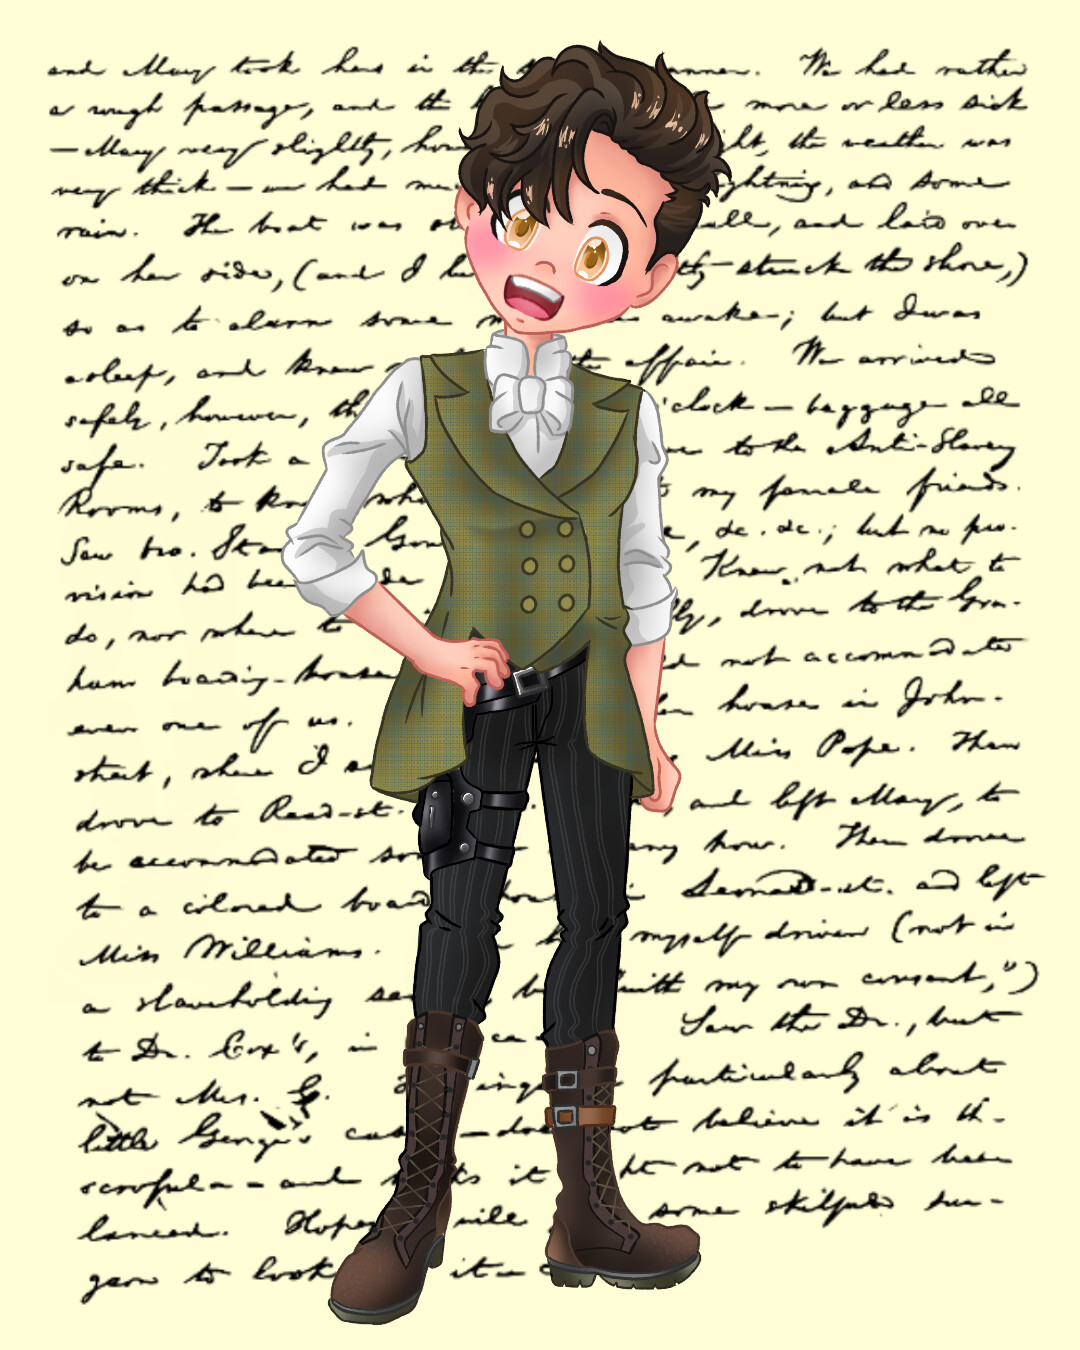 and Mary took hers in the s anner. We had rather
a rough passage, and the b more or less sick
— Mary very slightly, how ght, the weather was
very thick — we had me ghtning, and some
rain. The boat was st all, and laid over
on her side, (and I be tly struck the shore,)
so as to alarm some awake; but I was
asleep, and knew n the affair. We arrived
safely, however, th o'clock — baggage all
safe. Took a me to the Anti-Slavery
Rooms, to kno whe my female friends.
Saw bro. Stan Gon &c. &c.; but no pro-
vision had been de Knew not what to
do, nor where to lly, drove to the Gra-
ham boarding-house d not accommodated
even one of us. house in John-
street, where I s Miss Pope. Then
drove to Read-st. and left Mary, to
be accommodated som any how. Then drove
to a colored board hous in Leonard-st. and left
Miss Williams. myself driven (not in
a slaveholding sen bu "with my own consent,")
to Dr. Cox's, in ca Saw the Dr., but
not Mrs. G. inqu particularly about
little George's cas — do not believe it is th-
scrofula — and ks it ht not to have been
lanced. Hopes uile some skilful sur-
geon to look it